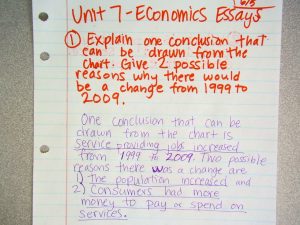 6/5
Unit 7-Economics Essays
① Explain one conclusion that
can be drawn from the
chart. Give 2 possible
reasons why there would
be a change from 1999 to
2009.
One conclusion that can be
drawn from the chart is
service providing job increased
from 1999 to 2009. Two possible
reasons there was a change are
1) The population increased and
2) Consumers had more
money to pay or spend on
services.